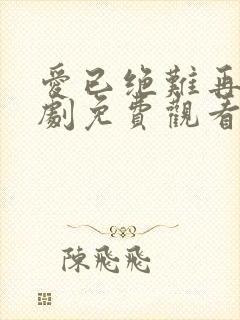 愛已绝難再
劇免費觀看
陳飛飛